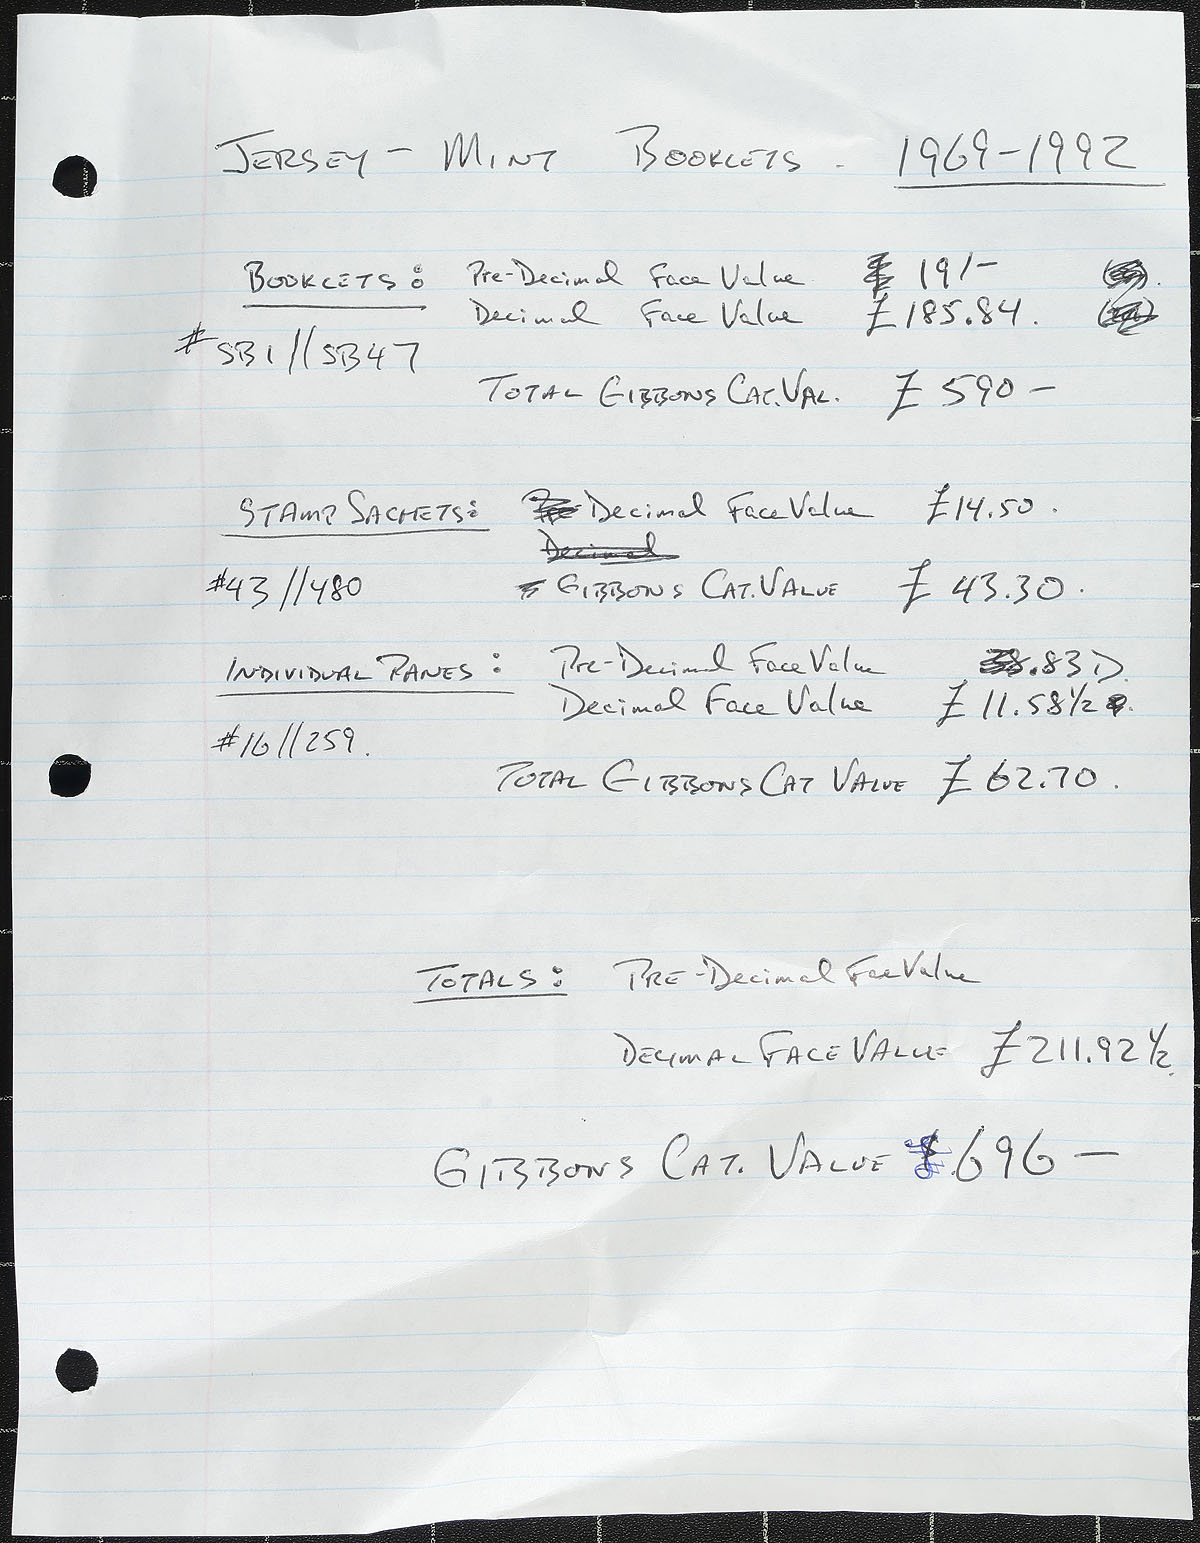 JERSEY - MINT BOOKLETS. 1969-1992
BOOKLETS: Pre-Decimal Face Value 19/-
Decimal Face Value £185.84.
# SB1//SB47
TOTAL GIBBONS CAT. VAL. £590-
STAMP SACHETS: Decimal Face Value £14.50.
Decimal
#43//480 GIBBONS CAT. VALUE £43.30.
INDIVIDUAL PANES: Pre-Decimal Face Value .83D.
Decimal Face Value £11.58½.
#16//259.
TOTAL GIBBONS CAT VALUE £62.70.
TOTALS: PRE-Decimal Face Value
DECIMAL FACE VALUE £211.92½.
GIBBONS CAT. VALUE £696-